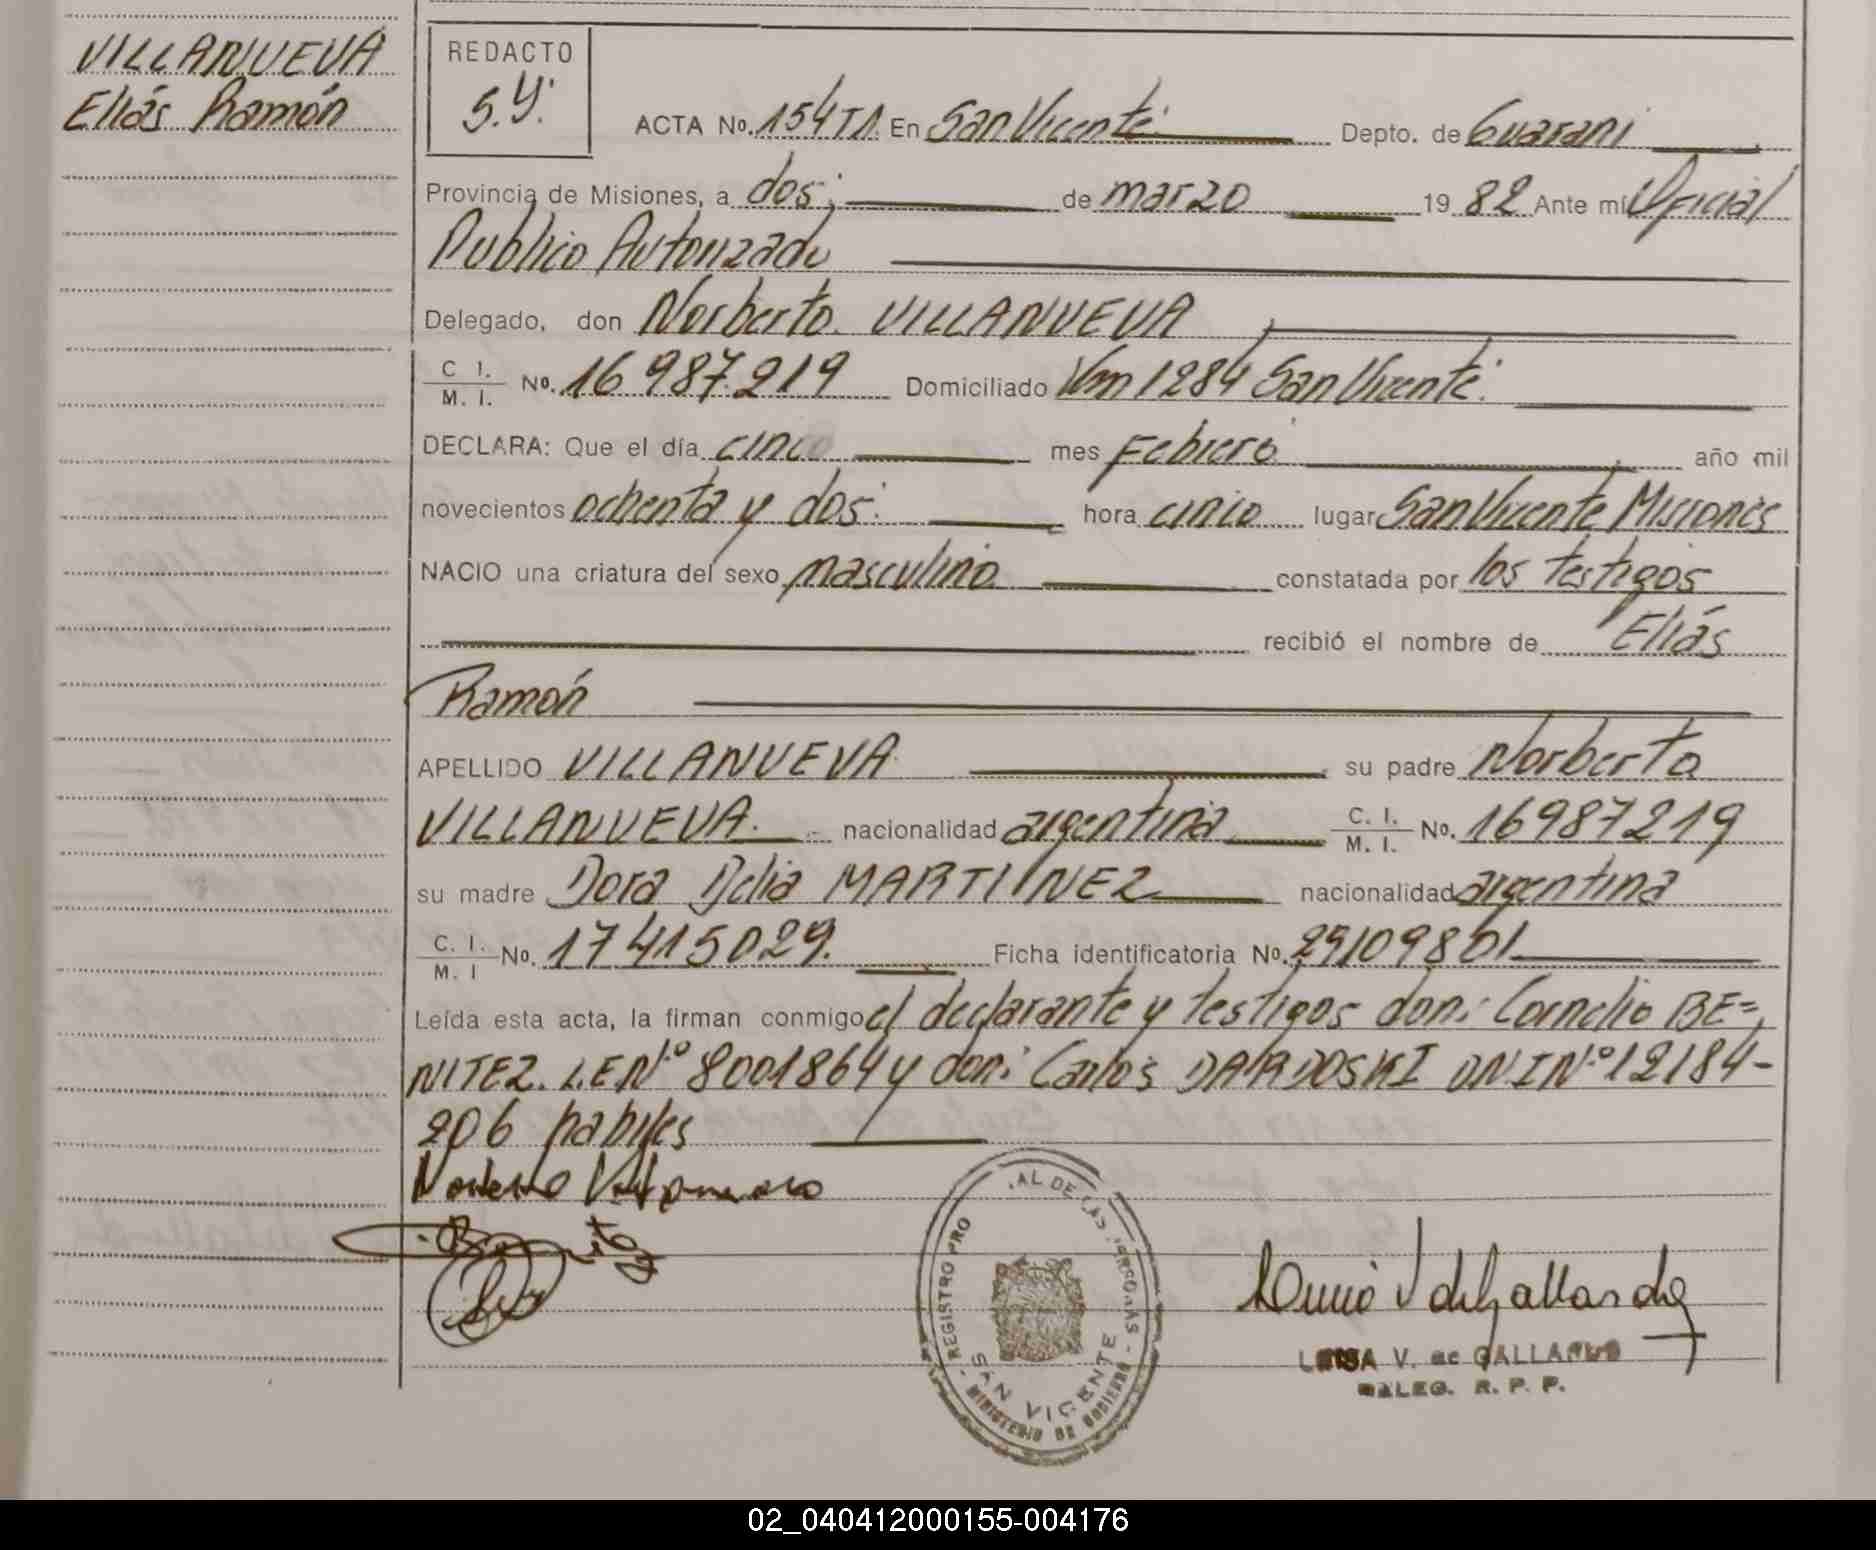 VILLANUEVA
Elías Ramón
REDACTO
S.Y.
ACTA No. 154 T1. En San Vicente. Depto. de Guaraní
Provincia de Misiones, a dos; de marzo 19 82 Ante mí Oficial
Público Autorizado
Delegado, don Norberto VILLANUEVA,
C. I. / M. I. No. 16 987.219 Domiciliado Km 1284 San Vicente.
DECLARA: Que el día cinco mes Febrero año mil
novecientos ochenta y dos. hora cinco lugar San Vicente Misiones
NACIO una criatura del sexo masculino constatada por los testigos
recibió el nombre de Elías
Ramón
APELLIDO VILLANUEVA su padre Norberto
VILLANUEVA. nacionalidad argentina C. I. / M. I. No. 16987219
su madre Dora Delia MARTINEZ nacionalidad argentina
C. I. / M. I No. 17415029. Ficha identificatoria No. 29109801
Leída esta acta, la firman conmigo el declarante y testigos don: Cornelio BE=
NITEZ. L.E Nº 8001864 y don: Carlos DARDOSKI DNI Nº 12184-
206 habiles
REGISTRO PRO AL DE LAS PERSONAS
SAN VICENTE
MINISTERIO DE GOBIERNO
LUISA V. de GALLARDO
DELEG. R. P. P.
02_040412000155-004176